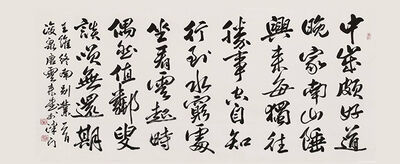 中歲頗好道
晚家南山陲
興來每獨往
勝事空自知
行到水窮處
坐看雲起時
偶然值鄰叟
談笑無還期
王維終南別業一首
唐雲來書